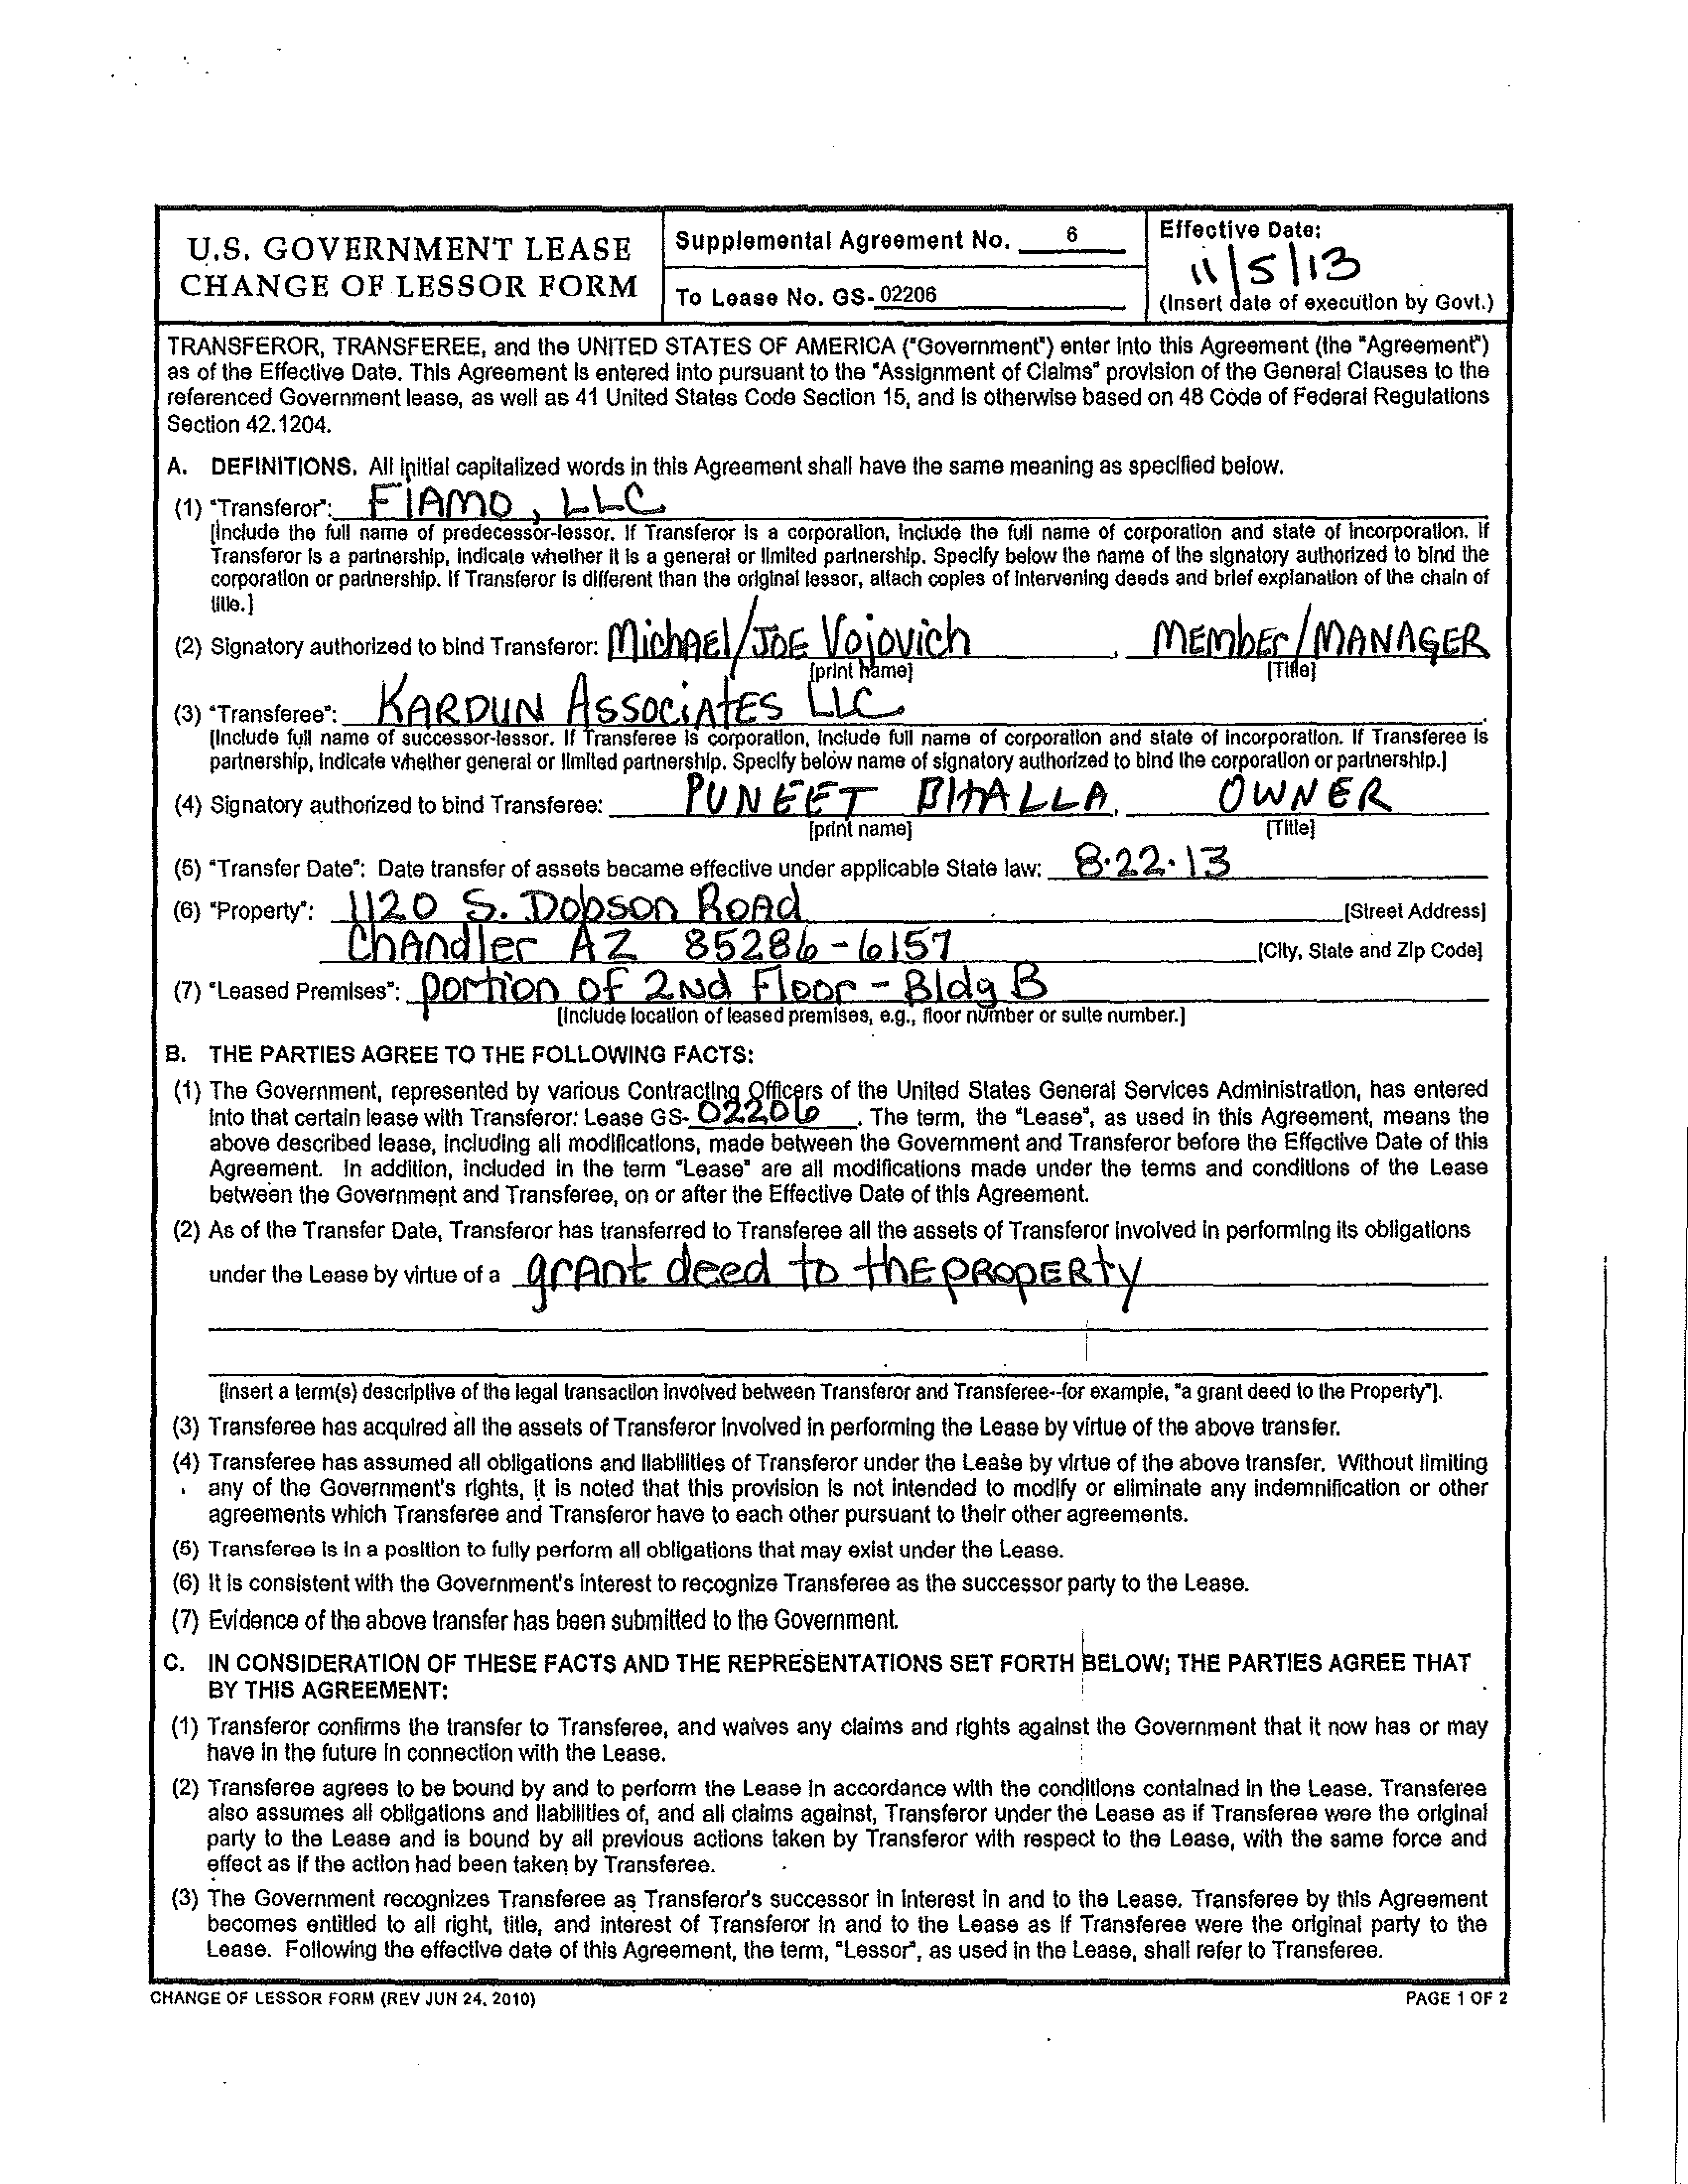 U.S. GOVERNMENT LEASE
CHANGE OF LESSOR FORM
Supplemental Agreement No. 6
To Lease No. GS- 02206
Effective Date:
11/5/13
(Insert date of execution by Govt.)
TRANSFEROR, TRANSFEREE, and the UNITED STATES OF AMERICA ("Government") enter into this Agreement (the "Agreement")
as of the Effective Date. This Agreement is entered into pursuant to the "Assignment of Claims" provision of the General Clauses to the
referenced Government lease, as well as 41 United States Code Section 15, and is otherwise based on 48 Code of Federal Regulations
Section 42.1204.
A. DEFINITIONS. All initial capitalized words in this Agreement shall have the same meaning as specified below.
(1) "Transferor": FIAMO, LLC
[Include the full name of predecessor-lessor. If Transferor is a corporation, include the full name of corporation and state of incorporation. If
Transferor is a partnership, indicate whether it is a general or limited partnership. Specify below the name of the signatory authorized to bind the
corporation or partnership. If Transferor is different than the original lessor, attach copies of intervening deeds and brief explanation of the chain of
title.]
(2) Signatory authorized to bind Transferor: MichAEl/JOE Vojovich, MEMbEr/MANAGER
[print name] [Title]
(3) "Transferee": KARDUN ASSOCiAtES LLC.
[Include full name of successor-lessor. If Transferee is corporation, include full name of corporation and state of incorporation. If Transferee is
partnership, indicate whether general or limited partnership. Specify below name of signatory authorized to bind the corporation or partnership.]
(4) Signatory authorized to bind Transferee: PUNEET BHALLA, OWNER
[print name] [Title]
(5) "Transfer Date": Date transfer of assets became effective under applicable State law: 8·22·13
(6) "Property": 1120 S. Dobson ROAd [Street Address]
ChANdler AZ 85286-6157 [City, State and Zip Code]
(7) "Leased Premises": portion of 2Nd Floor - Bldg B
[Include location of leased premises, e.g., floor number or suite number.]
B. THE PARTIES AGREE TO THE FOLLOWING FACTS:
(1) The Government, represented by various Contracting Officers of the United States General Services Administration, has entered
into that certain lease with Transferor: Lease GS- 02206. The term, the "Lease", as used in this Agreement, means the
above described lease, including all modifications, made between the Government and Transferor before the Effective Date of this
Agreement. In addition, included in the term "Lease" are all modifications made under the terms and conditions of the Lease
between the Government and Transferee, on or after the Effective Date of this Agreement.
(2) As of the Transfer Date, Transferor has transferred to Transferee all the assets of Transferor involved in performing its obligations
under the Lease by virtue of a grANt deed to thE pROpERty
[Insert a term(s) descriptive of the legal transaction involved between Transferor and Transferee--for example, "a grant deed to the Property"].
(3) Transferee has acquired all the assets of Transferor involved in performing the Lease by virtue of the above transfer.
(4) Transferee has assumed all obligations and liabilities of Transferor under the Lease by virtue of the above transfer. Without limiting
any of the Government's rights, it is noted that this provision is not intended to modify or eliminate any indemnification or other
agreements which Transferee and Transferor have to each other pursuant to their other agreements.
(5) Transferee is in a position to fully perform all obligations that may exist under the Lease.
(6) It is consistent with the Government's interest to recognize Transferee as the successor party to the Lease.
(7) Evidence of the above transfer has been submitted to the Government.
C. IN CONSIDERATION OF THESE FACTS AND THE REPRESENTATIONS SET FORTH BELOW; THE PARTIES AGREE THAT
BY THIS AGREEMENT:
(1) Transferor confirms the transfer to Transferee, and waives any claims and rights against the Government that it now has or may
have in the future in connection with the Lease.
(2) Transferee agrees to be bound by and to perform the Lease in accordance with the conditions contained in the Lease. Transferee
also assumes all obligations and liabilities of, and all claims against, Transferor under the Lease as if Transferee were the original
party to the Lease and is bound by all previous actions taken by Transferor with respect to the Lease, with the same force and
effect as if the action had been taken by Transferee.
(3) The Government recognizes Transferee as Transferor's successor in interest in and to the Lease. Transferee by this Agreement
becomes entitled to all right, title, and interest of Transferor in and to the Lease as if Transferee were the original party to the
Lease. Following the effective date of this Agreement, the term, "Lessor", as used in the Lease, shall refer to Transferee.
CHANGE OF LESSOR FORM (REV JUN 24, 2010)
PAGE 1 OF 2